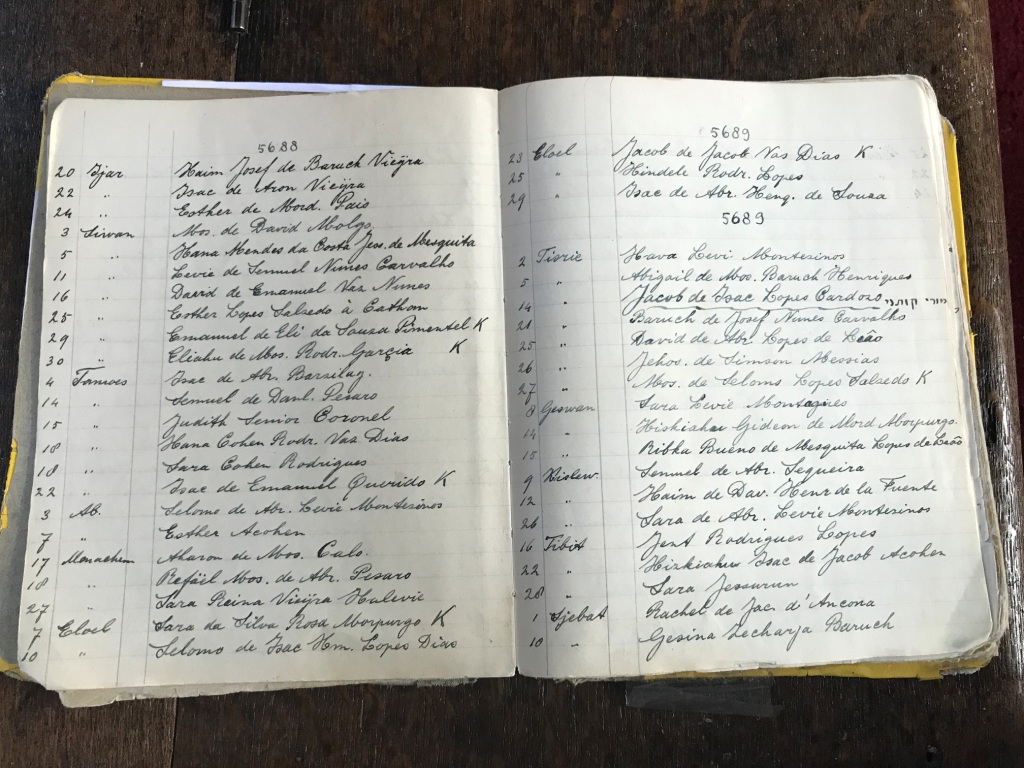 5688
20 Ijar Haim Josef de Baruch Vieÿra
22 " Isac de Aron Vieÿra
24 " Esther de Mord. Paio
3 Siwan Mos. de David Molgo
5 " Hana Mendes da Costa Jess. de Mesquita
11 " Levie de Semuel Nunes Carvalho
16 " David de Emanuel Vaz Nunes
25 " Esther Lopes Salzedo à Cathom
29 " Emanuel de Eli da Souza Pimentel K
30 " Eliahu de Mos. Rodr. Garçia K
4 Tamoes Isac de Abr. Barzilaÿ.
14 " Semuel de Danl. Pesaro
15 " Judith Senior Coronel
18 " Hana Cohen Rodr. Vaz Dias
18 " Sara Cohen Rodrigues
22 " Isac de Emanuel Querido K
3 Ab. Selomo de Abr. Levie Montezinos
7 " Esther Acohen
17 Menachem Aharon de Mos. Calo.
18 " Refaël Mos. de Abr. Pesaro
27 " Sara Reina Vieÿra Halevie
7 Eloel Sara da Silva Rosa Morpurgo K
10 " Selomo de Isac Hm. Lopes Dias
5689
23 Eloel Jacob de Jacob Vas Dias K
25 " Hindele Rodr. Lopes
29 " Isac de Abr. Heng. de Souza
5689
2 Tisrie Hava Levi Montesinos
5 " Abigail de Mos. Baruch Henriques
14 " Jacob de Isac Lopes Cardozo
21 " Baruch de Josef Nunes Carvalho
25 " David de Abr. Lopes de Leão
26 " Jehos. de Simson Messias
27 " Mos. de Selomo Lopes Salzedo K
8 Geswan Sara Levie Montezines
14 " Hiskiahu Gideon de Mord Morpurgo.
15 " Ribka Bueno de Mesquita Lopes de Leão
9 Kislew. Semuel de Abr. Sequeira
12 " Haim de Dav. Henr de la Fuente
26 " Sara de Abr. Levie Montesinos
16 Tibit Jent Rodrigues Lopes
22 " Hizkiahu Isac de Jacob Acohen
28 " Sara Jessurun
1 Sjebat Rachel de Jac. d'Ancona
10 " Gesina Zecharja Baruch